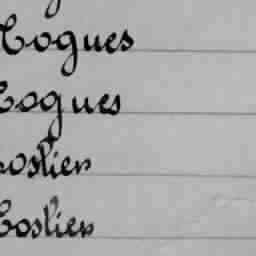 Cogues
Cogues
oslier
Coslier